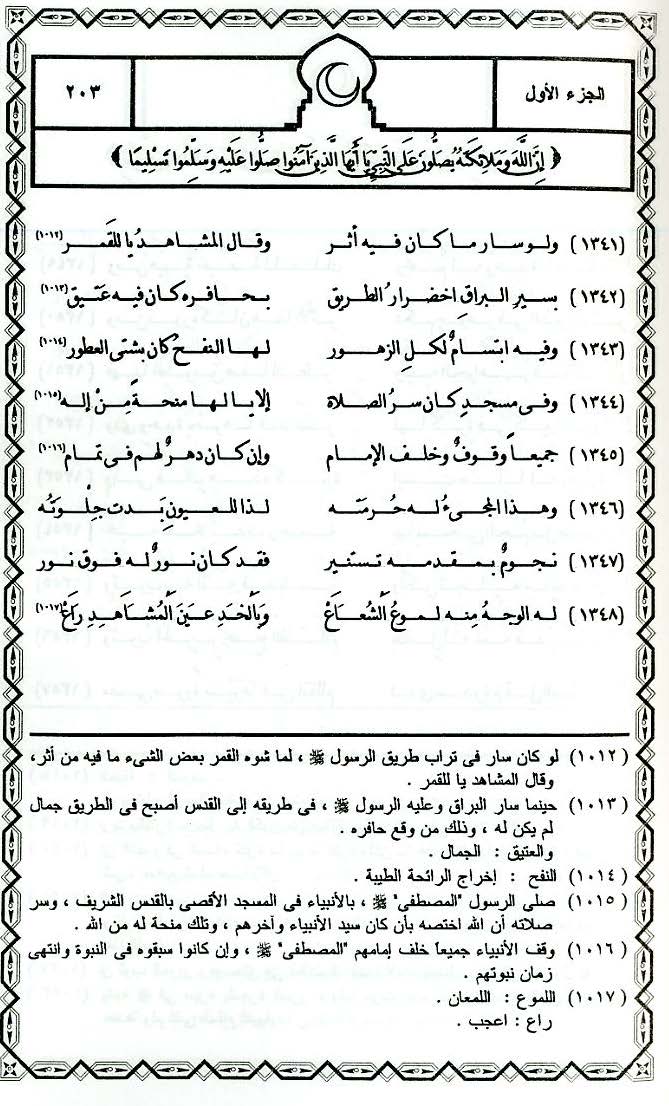 الجزء الأول
٢٠٣
﴿ إِنَّ اللَّهَ وَمَلَائِكَتَهُ يُصَلُّونَ عَلَى النَّبِيِّ يَا أَيُّهَا الَّذِينَ آمَنُوا صَلُّوا عَلَيْهِ وَسَلِّمُوا تَسْلِيمًا ﴾
(١٣٤١) ولو سار ما كان فيه أثر وقال المشاهدُ يا للقَمر (١٠١٢)
(١٣٤٢) بسيرِ البراقِ اخضرارُ الطريق بحافره كان فيه عتيق (١٠١٣)
(١٣٤٣) وفيه ابتسامٌ لكلِ الزهور لها النفحُ كان بشتى العطور (١٠١٤)
(١٣٤٤) وفى مسجدٍ كان سرُ الصلاه إلا يا لها منحةً مِنْ إله (١٠١٥)
(١٣٤٥) جميعاً وقوفٌ وخلفَ الإمام وإن كان دهرٌ لهم فى تمام (١٠١٦)
(١٣٤٦) وهذا المجىءُ له حُرمَته لذا للعيونِ بَدت جِلوَتُه
(١٣٤٧) نجومٌ بمقدمه تستنير فقد كان نورٌ له فوق نور
(١٣٤٨) له الوجهُ مِنه لموعُ الشُعاعْ وبالخدِ عينَ المُشاهدِ رَاعْ (١٠١٧)
(١٠١٢) لو كان سار فى تراب طريق الرسول ﷺ ، لما شوه القمر بعض الشىء ما فيه من أثر،
وقال المشاهد يا للقمر .
(١٠١٣) حينما سار البراق وعليه الرسول ﷺ ، فى طريقه إلى القدس أصبح فى الطريق جمال
لم يكن له ، وذلك من وقع حافره .
والعتيق : الجمال .
(١٠١٤) النفح : إخراج الرائحة الطيبة .
(١٠١٥) صلى الرسول "المصطفى" ﷺ ، بالأنبياء فى المسجد الأقصى بالقدس الشريف ، وسر
صلاته أن الله اختصه بأن كان سيد الأنبياء وآخرهم ، وتلك منحة له من الله .
(١٠١٦) وقف الأنبياء جميعاً خلف إمامهم "المصطفى" ﷺ ، وإن كانوا سبقوه فى النبوة وانتهى
زمان نبوتهم .
(١٠١٧) اللموع : اللمعان .
راع : اعجب .